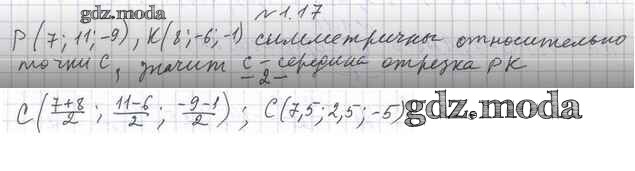 gdz.moda
№1.17
P(7; 11; -9), K(8; -6; -1) симметричны относительно
точки C, значит C - середина отрезка PK
- 2 -
C((7+8)/2; (11-6)/2; (-9-1)/2); C(7,5; 2,5; -5)
gdz.moda